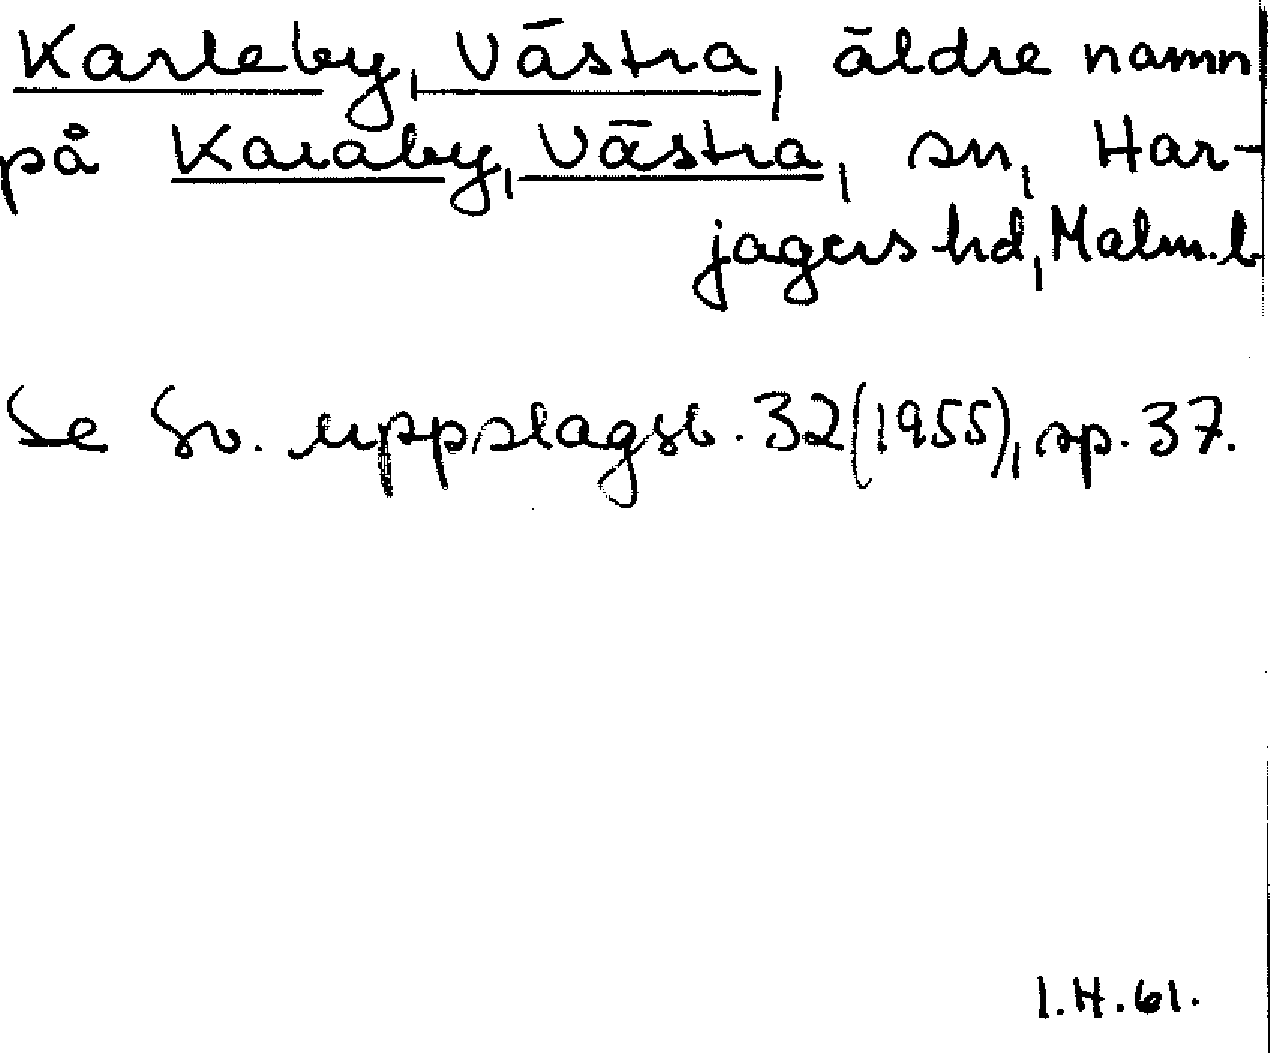 Karleby, Västra, äldre namn
på Karaby, Västra, sn, Har-
jagers hd, Malm.l.
Se Sv. uppslagsb. 32 (1955), sp. 37.
I.H.61.